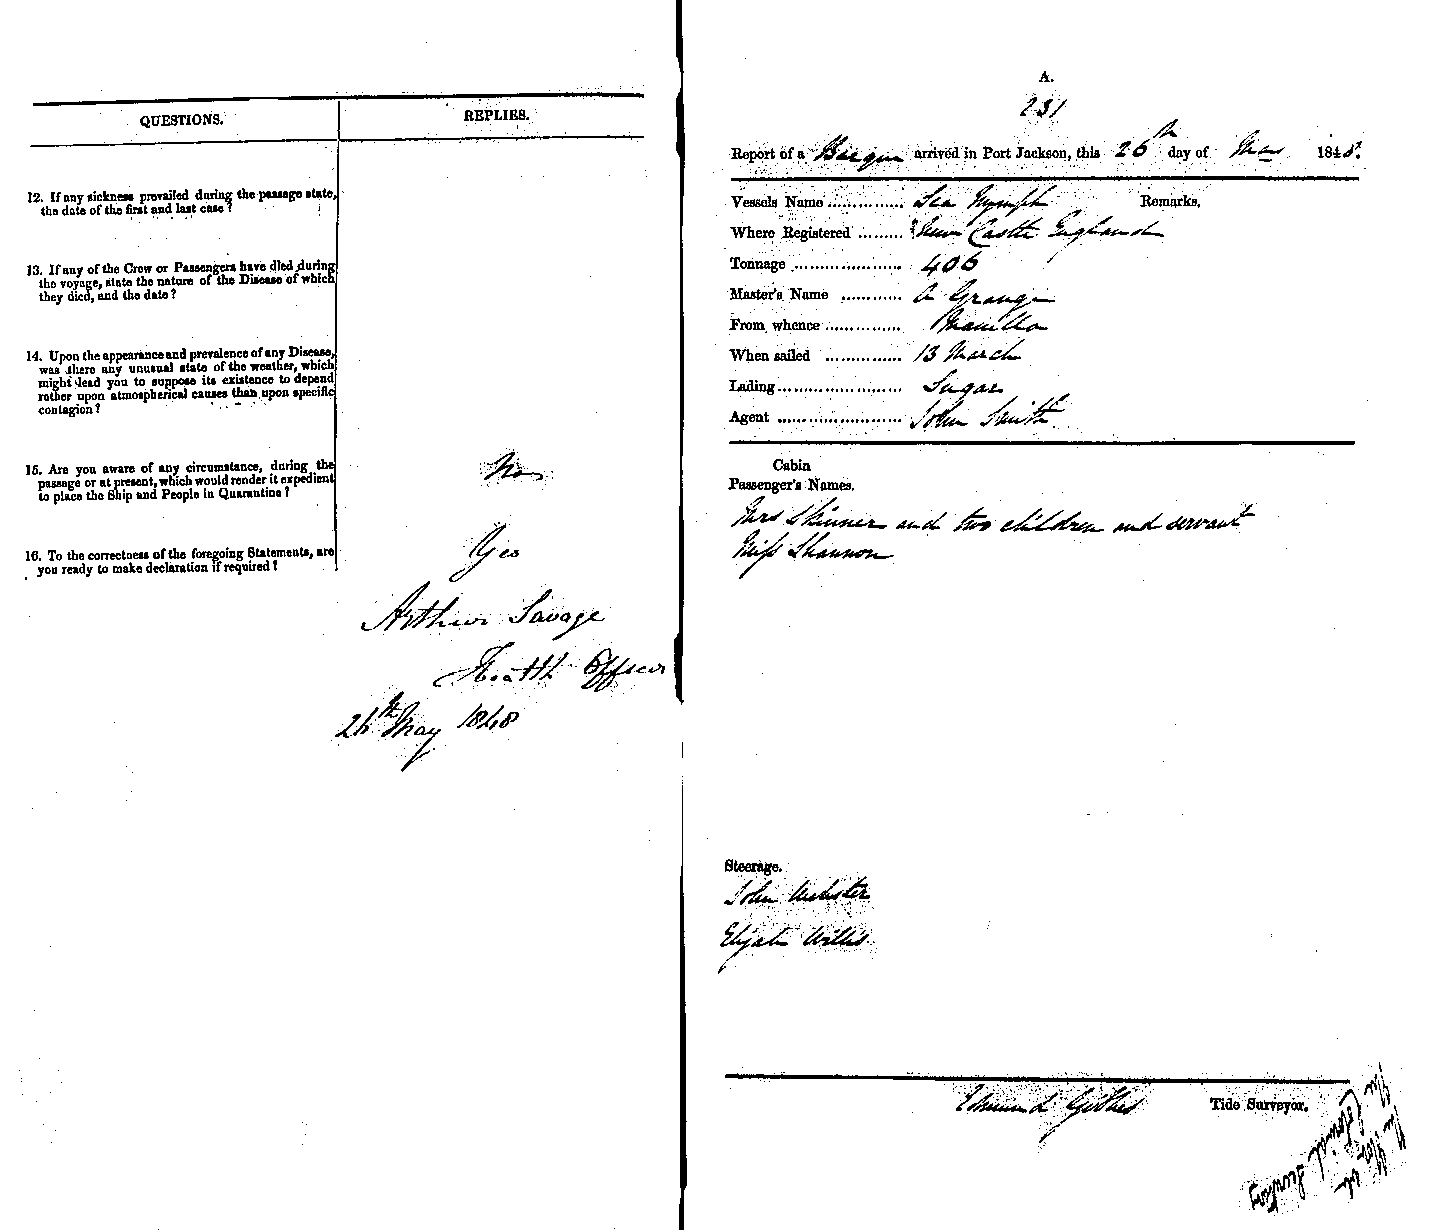 QUESTIONS.
REPLIES.
12. If any sickness prevailed during the passage state,
the date of the first and last case?
13. If any of the Crew or Passengers have died during
the voyage, state the nature of the Disease of which
they died, and the date?
14. Upon the appearance and prevalence of any Disease,
was there any unusual state of the weather, which
might lead you to suppose its existence to depend
rather upon atmospherical causes than upon specific
contagion?
15. Are you aware of any circumstance, during the
passage or at present, which would render it expedient
to place the Ship and People in Quarantine?
No
16. To the correctness of the foregoing Statements, are
you ready to make declaration if required?
Yes
Arthur Savage
Health Officer
26th May 1848
A.
231
Report of a Barque arrived in Port Jackson, this 26th day of May 1848.
Vessels Name .............. Sea Nymph Remarks,
Where Registered ......... New Castle England
Tonnage .................... 406
Master's Name ............ A Grange
From whence ............... Manilla
When sailed .............. 13 March
Lading....................... Sugar
Agent ....................... John Smith
Cabin
Passenger's Names.
Mrs Skinner and two children and servant
Miss Shannon
Steerage.
John Webster
Elijah Willis
Edmund Tide Surveyor.
The Hon the
Colonial Secretary